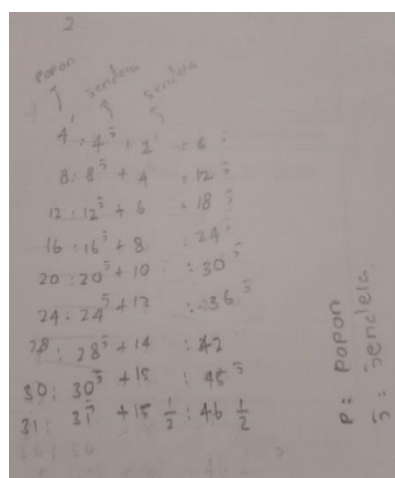 2
papan sendela sendela
4 : 4 ⁵ + 2 : 6
8 : 8 ⁵ + 4 : 12 ⁵
12 : 12 ⁵ + 6 : 18 ⁵
16 : 16 ⁵ + 8 : 24 ⁵
20 : 20 ⁵ + 10 : 30 ⁵
24 : 24 ⁵ + 12 : 36 ⁵
28 : 28 ⁵ + 14 : 42
30 : 30 ⁵ + 15 : 45 ⁵
31 : 31 ⁵ + 15 1/2 : 46 1/2
P : papan
5 : Sendela